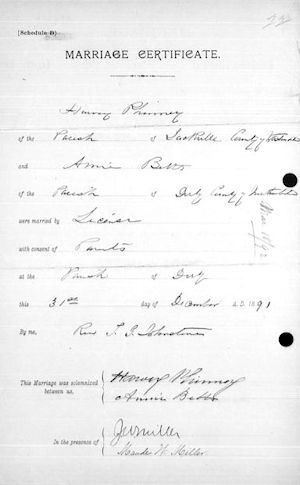 [Schedule B)
MARRIAGE CERTIFICATE.
Harvey Phinney
of the Parish of Sackville County of
and Annie Betts
of the Parish of Derby County of
were married by License
with consent of Parents
at the Parish of Derby
this 31st day of December A.D. 1891
By me, Rev T. J. Johnstone
This Marriage was solemnized
between us,
Harvey Phinney
Annie Betts
In the presence of
Maude W. Miller